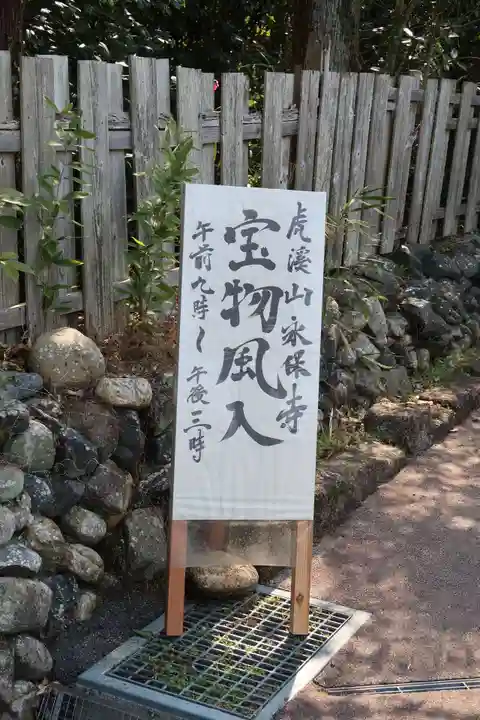 虎溪山永保寺
宝物風入
午前九時〜午後三時